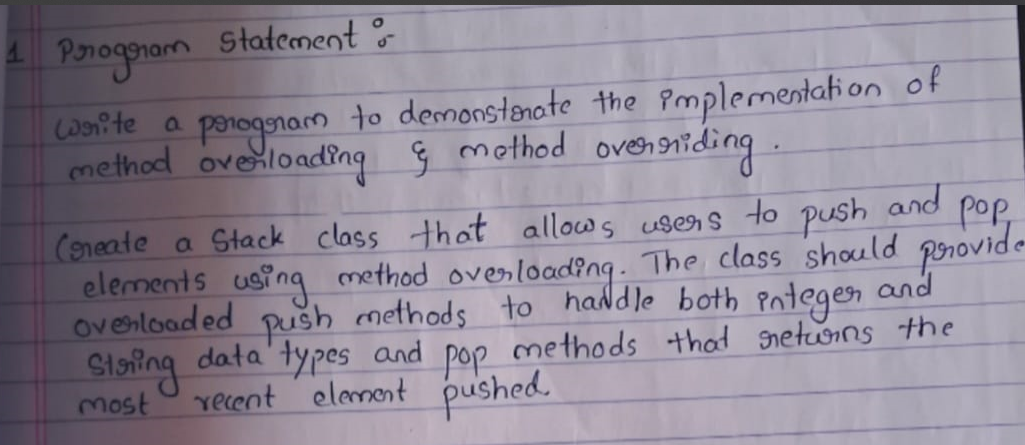 1 Program Statement :-
Write a program to demonstrate the implementation of
method overloading & method overriding.
Create a Stack class that allows users to push and pop
elements using method overloading. The class should provide
overloaded push methods to handle both integer and
String data types and pop methods that returns the
most recent element pushed.